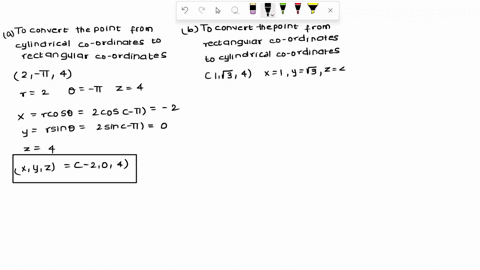 (a) To convert the point from
cylindrical co-ordinates to
rectangular co-ordinates
(2, -π, 4)
r = 2 θ = -π z = 4
x = rcosθ = 2cos(-π) = -2
y = rsinθ = 2sin(-π) = 0
z = 4
(x, y, z) = (-2, 0, 4)
(b) To convert the point from
rectangular co-ordinates
to cylindrical co-ordinates
(1, √3, 4) x = 1, y = √3, z =